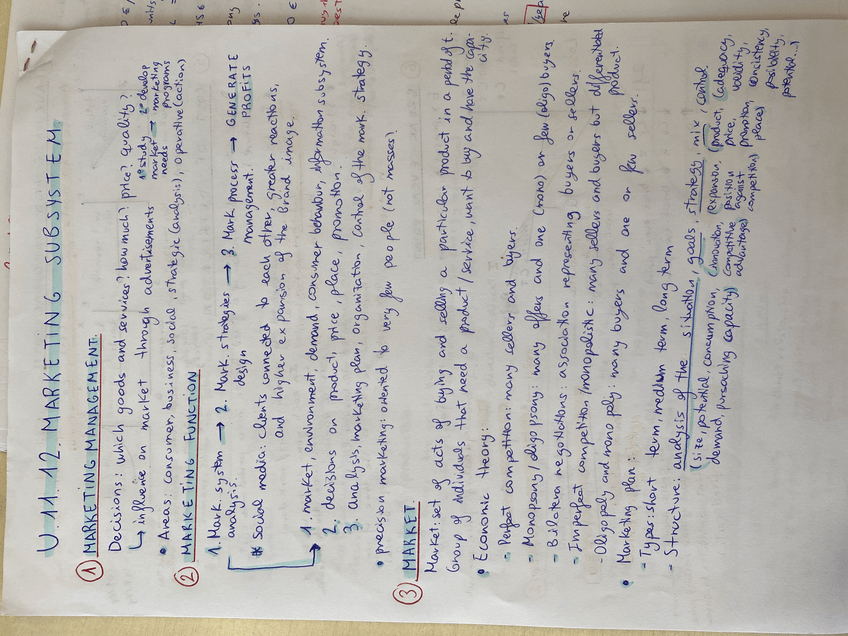 U.11.12. MARKETING SUBSYSTEM
1 MARKETING MANAGEMENT.
Decisions: which goods and services? how much? price? quality?
↳ influence on market through advertisements
1º study market needs → 2º develop marketing programs
• Areas: consumer, business, social, strategic (analysis), operative (action)
2 MARKETING FUNCTION
1. Mark. system analysis. → 2. Mark. strategies design → 3. Mark process management. → GENERATE PROFITS
* Social media: clients connected to each other, greater reactions,
and higher expansion of the Brand image.
1. market, environment, demand, consumer behaviour, information subsystem.
2. decisions on product, price, place, promotion.
3. analysis, marketing plan, organization, control of the mark. strategy.
• precision marketing: oriented to very few people (not masses)
3 MARKET.
Market: set of acts of buying and selling a particular product in a period of t.
Group of individuals that need a product/service, want to buy and have the capacity.
• Economic theory:
- Perfect competition: many sellers and buyers.
- Monopsony/oligopsony: many offers and one (mono) or few (oligo) buyers
- Bilateral negotiations: association representing buyers or sellers.
- Imperfect competition/monopolistic: many sellers and buyers but differentiated product.
- Oligopoly and monopoly: many buyers and one or few sellers.
• Marketing plan:
- Types: short term, medium term, long term
- Structure: analysis of the situation, goals, strategy mix, control.
(size, potential, consumption, demand, pursaching capacity)
(innovation, competitive advantage)
(expansion, position against competition)
(product, price, promotion, place)
(adequacy, validity, consistency, posibility, potential...)